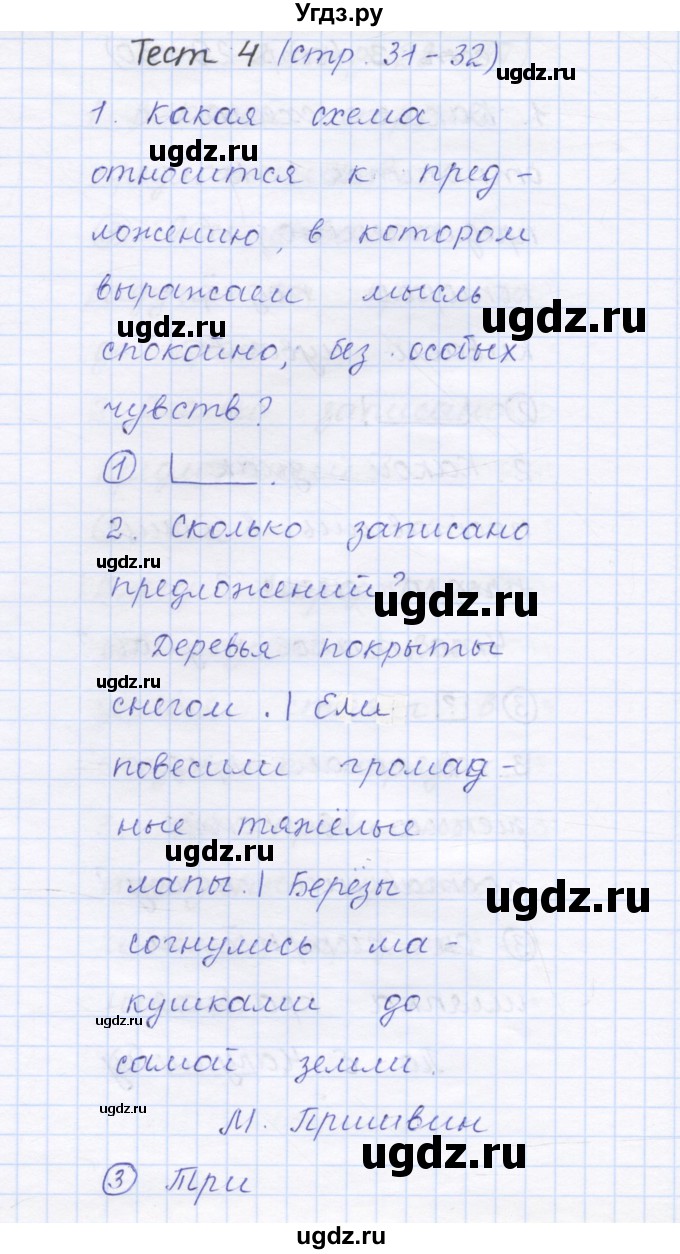 Угдз.ру
Тест 4 (стр. 31-32)
ugdz.ru
1. Какая схема
ugdz.ru
относится к пред-
ложению, в котором
выражаем мысль
ugdz.ru
ugdz.ru
спокойно, без особых
чувств?
1 |____.
2. Сколько записано
ugdz.ru
предложений?
ugdz.ru
Деревья покрыты
ugdz.ru
снегом. | Ели
повесили громад-
ные тяжёлые
ugdz.ru
лапы. | Берёзы
ugdz.ru
согнулись ма-
кушками до
ugdz.ru
самой земли.
ugdz.ru
М. Пришвин
ugdz.ru
3 Три
ugdz.ru